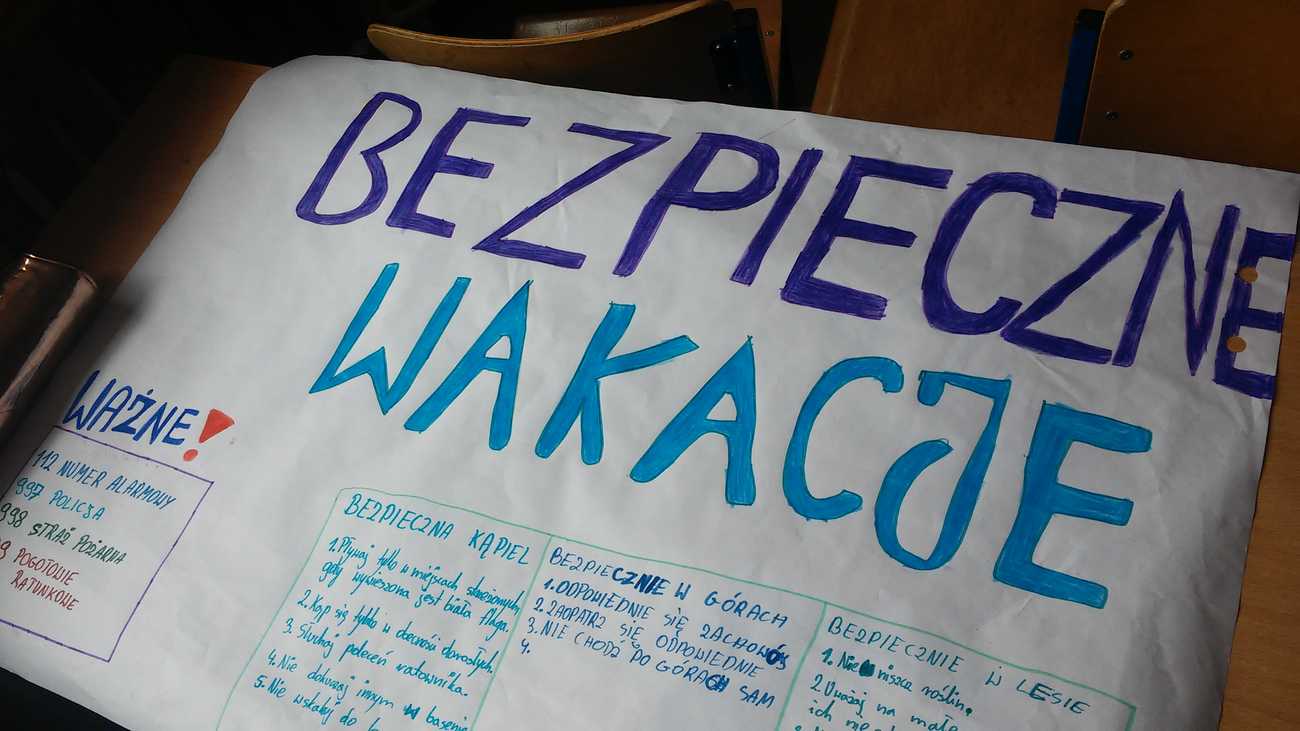 BEZPIECZNE
WAKACJE
WAŻNE!
112 NUMER ALARMOWY
997 POLICJA
998 STRAŻ POŻARNA
9 POGOTOWIE
RATUNKOWE
BEZPIECZNA KĄPIEL
1. Pływaj tylko w miejscach strzeżonych,
gdy wywieszona jest biała flaga.
2. Kąp się tylko w obecności dorosłych.
3. Słuchaj poleceń ratownika.
4. Nie dokuczaj innym w basenie
5. Nie wskakuj do
BEZPIECZNIE W GÓRACH
1. ODPOWIEDNIE SIĘ ZACHOWÓJ
2. ZAOPATRZ SIĘ ODPOWIEDNIE
3. NIE CHODŹ PO GÓRACH SAM
4.
BEZPIECZNIE W LESIE
1. Nie niszcz roślin.
2. Uważaj na małe
ich